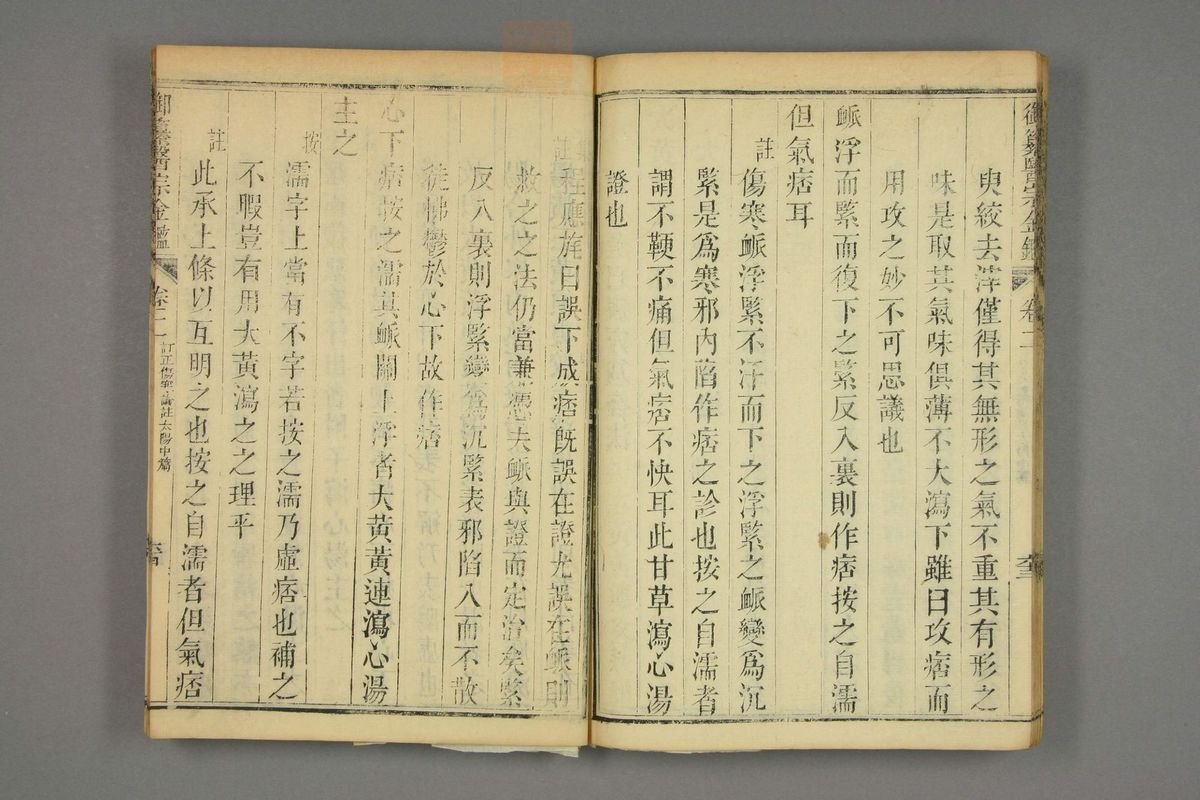 御纂醫宗金鑑 卷二
臾絞去滓僅得其無形之氣不重其有形之
味是取其氣味俱薄不大瀉下雖曰攻痞而
用攻之妙不可思議也
脈浮而緊而復下之緊反入裏則作痞按之自濡
但氣痞耳
註傷寒脈浮緊不汗而下之浮緊之脈變爲沉
緊是爲寒邪內陷作痞之診也按之自濡者
謂不鞕不痛但氣痞不快耳此甘草瀉心湯
證也
集註程應旄曰誤下成痞旣誤在證尤誤在脈則
救之之法仍當兼憑夫脈與證而定治矣緊
反入裏則浮緊變爲沉緊表邪陷入而不散
徒怫鬱於心下故作痞
心下痞按之濡其脈關上浮者大黃黃連瀉心湯
主之
按濡字上當有不字若按之濡乃虛痞也補之
不暇豈有用大黃瀉之之理乎
註此承上條以互明之也按之自濡者但氣痞
御纂醫宗金鑑 卷二 訂正傷寒論註太陽中篇